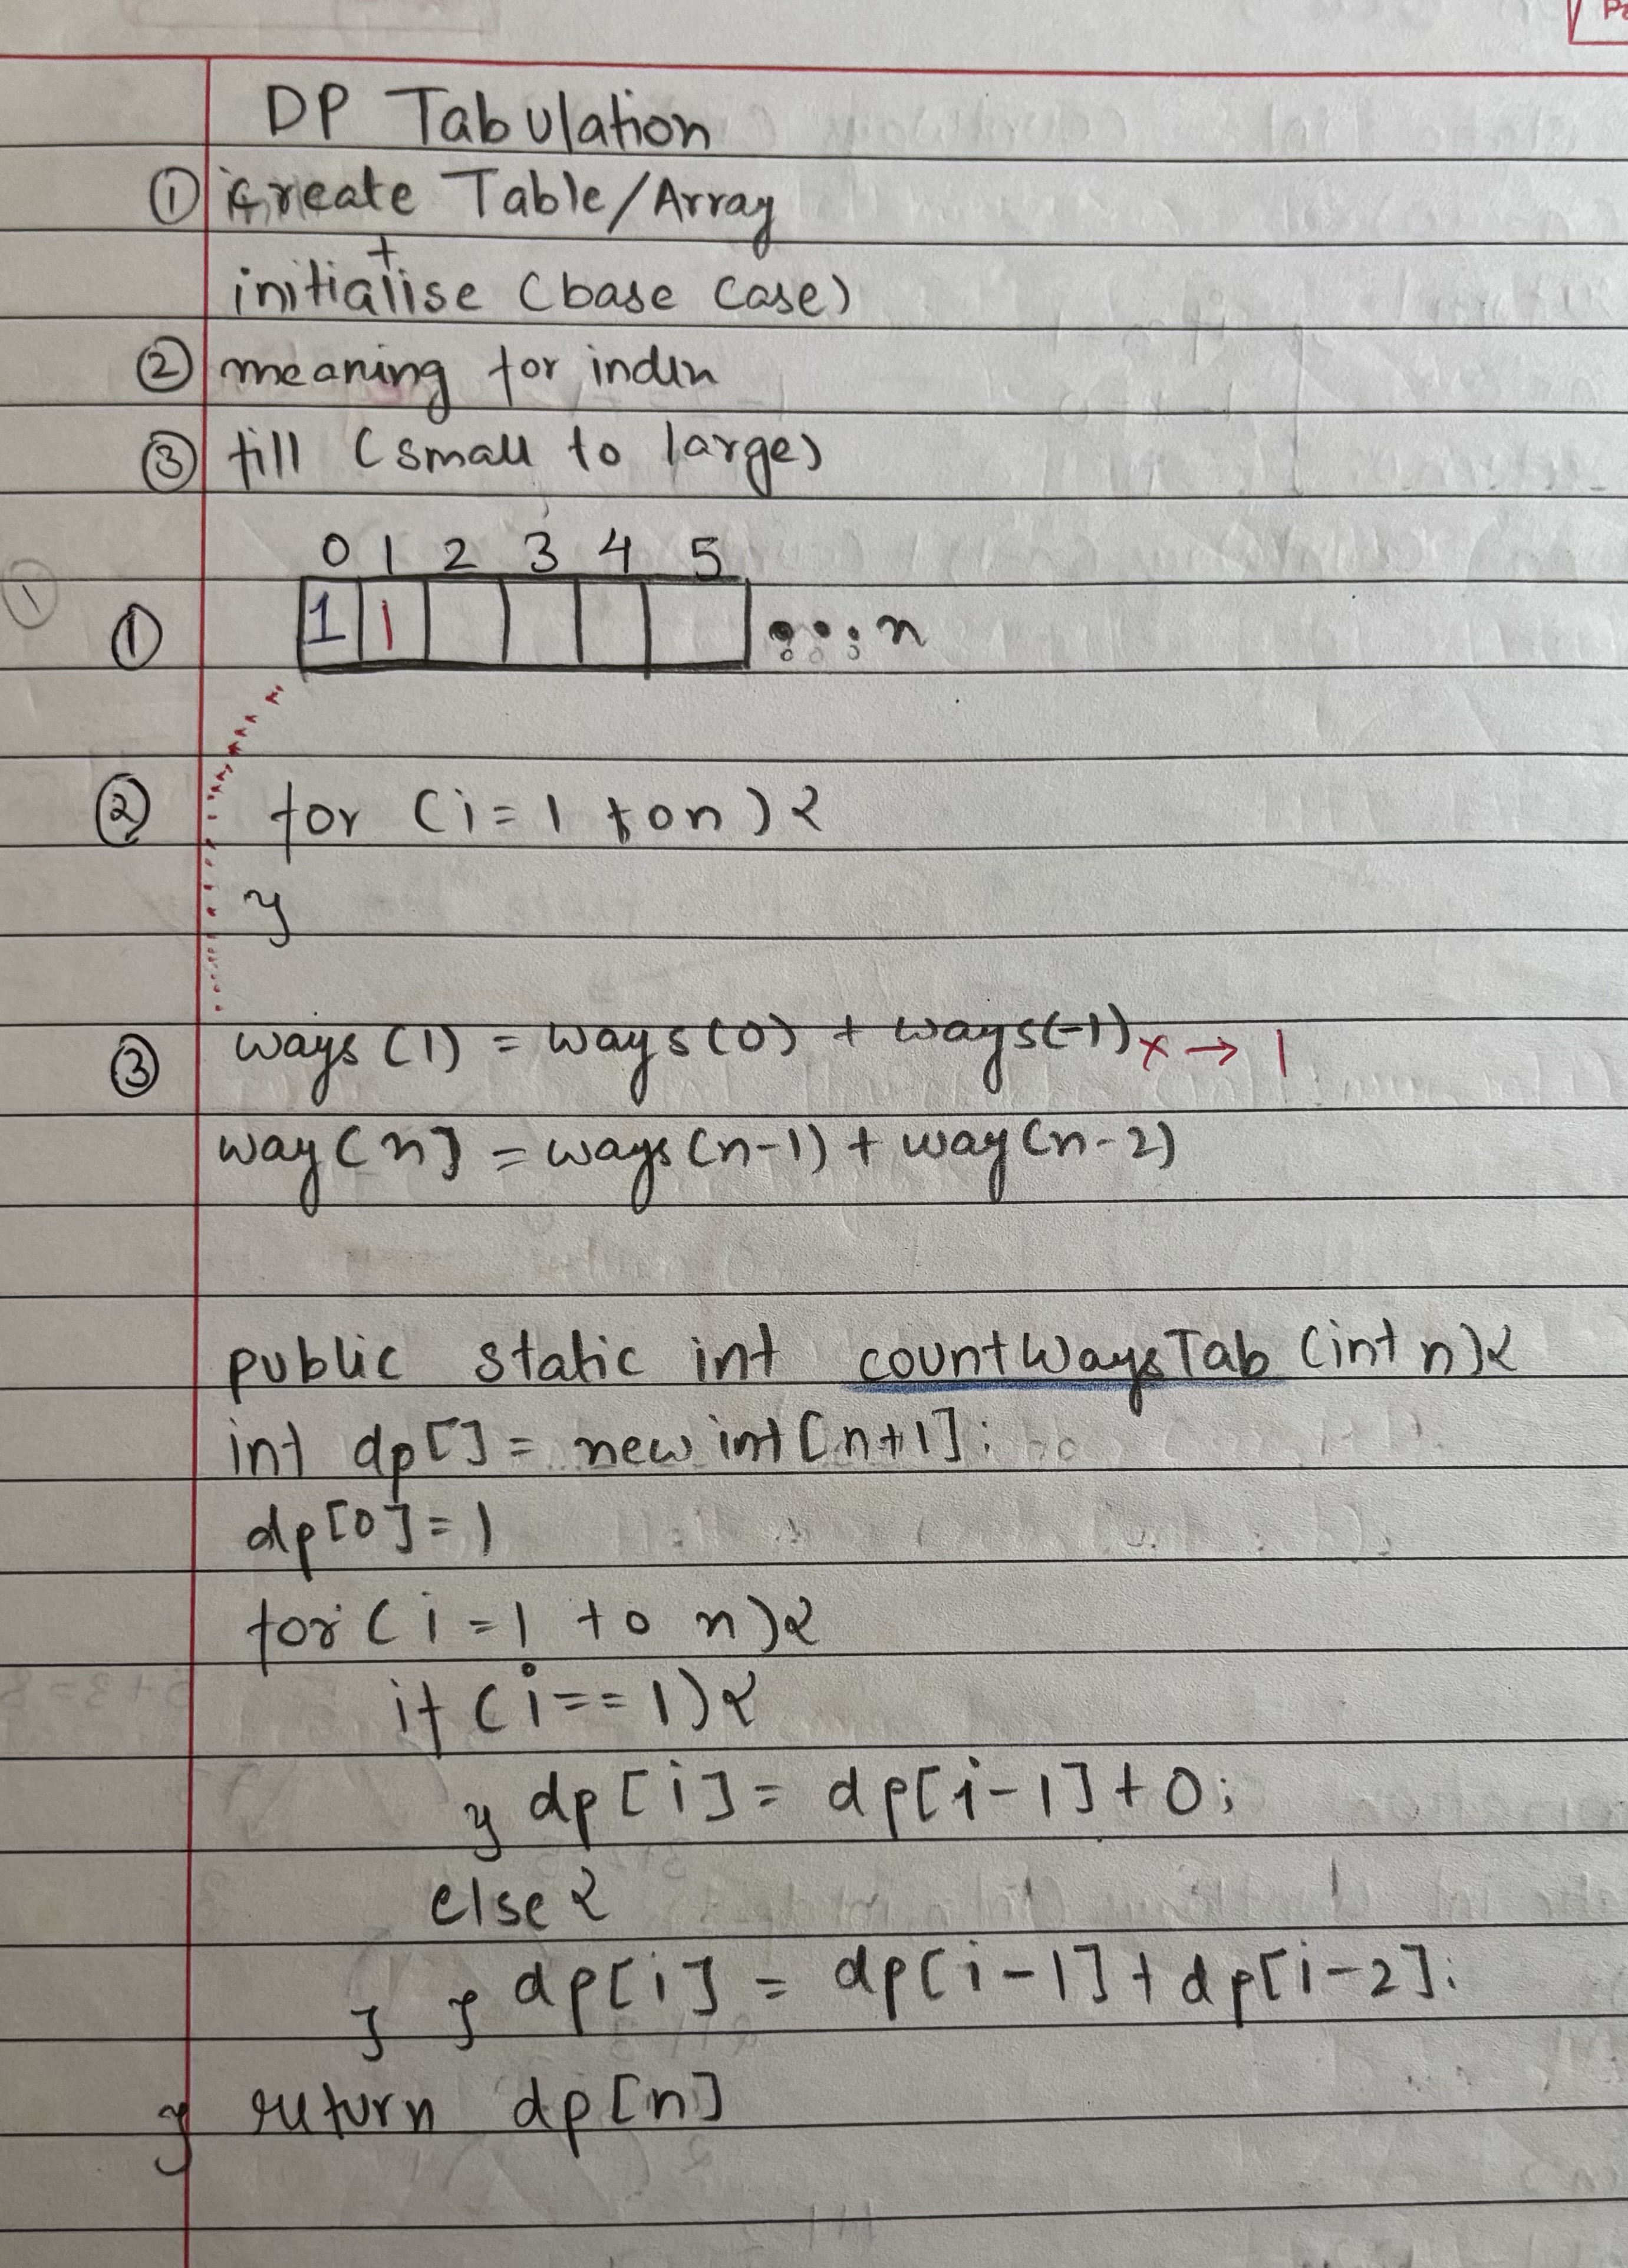 DP Tabulation
① Create Table/Array
+
initialise (base case)
② meaning for index
③ fill (small to large)
0 1 2 3 4 5
① 1 1 ... n
② for (i = 1 to n) {
}
③ ways (1) = ways (0) + ways(-1) x → 1
way (n] = ways (n-1) + way (n-2)
public static int countWaysTab (int n){
int dp[] = new int [n+1];
dp[0] = 1
for (i = 1 to n){
if (i == 1){
} dp [i] = dp[i-1] + 0;
else {
} } dp[i] = dp[i-1] + dp[i-2];
} return dp[n]